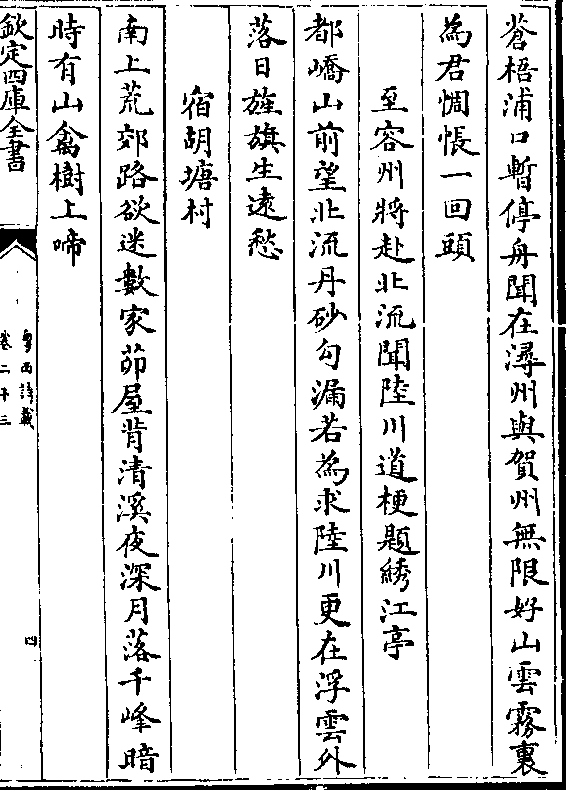 蒼梧浦口暫停舟聞在潯州與賀州無限好山雲霧裏
為君惆悵一回頭
至容州將赴北流聞陸川道梗題綉江亭
都嶠山前望北流丹砂勾漏若為求陸川更在浮雲外
落日旌旗生遠愁
宿胡塘村
南上荒郊路欲迷數家茆屋背清溪夜深月落千峰暗
時有山禽樹上啼
欽定四庫全書
粤西詩載
卷二十三
四